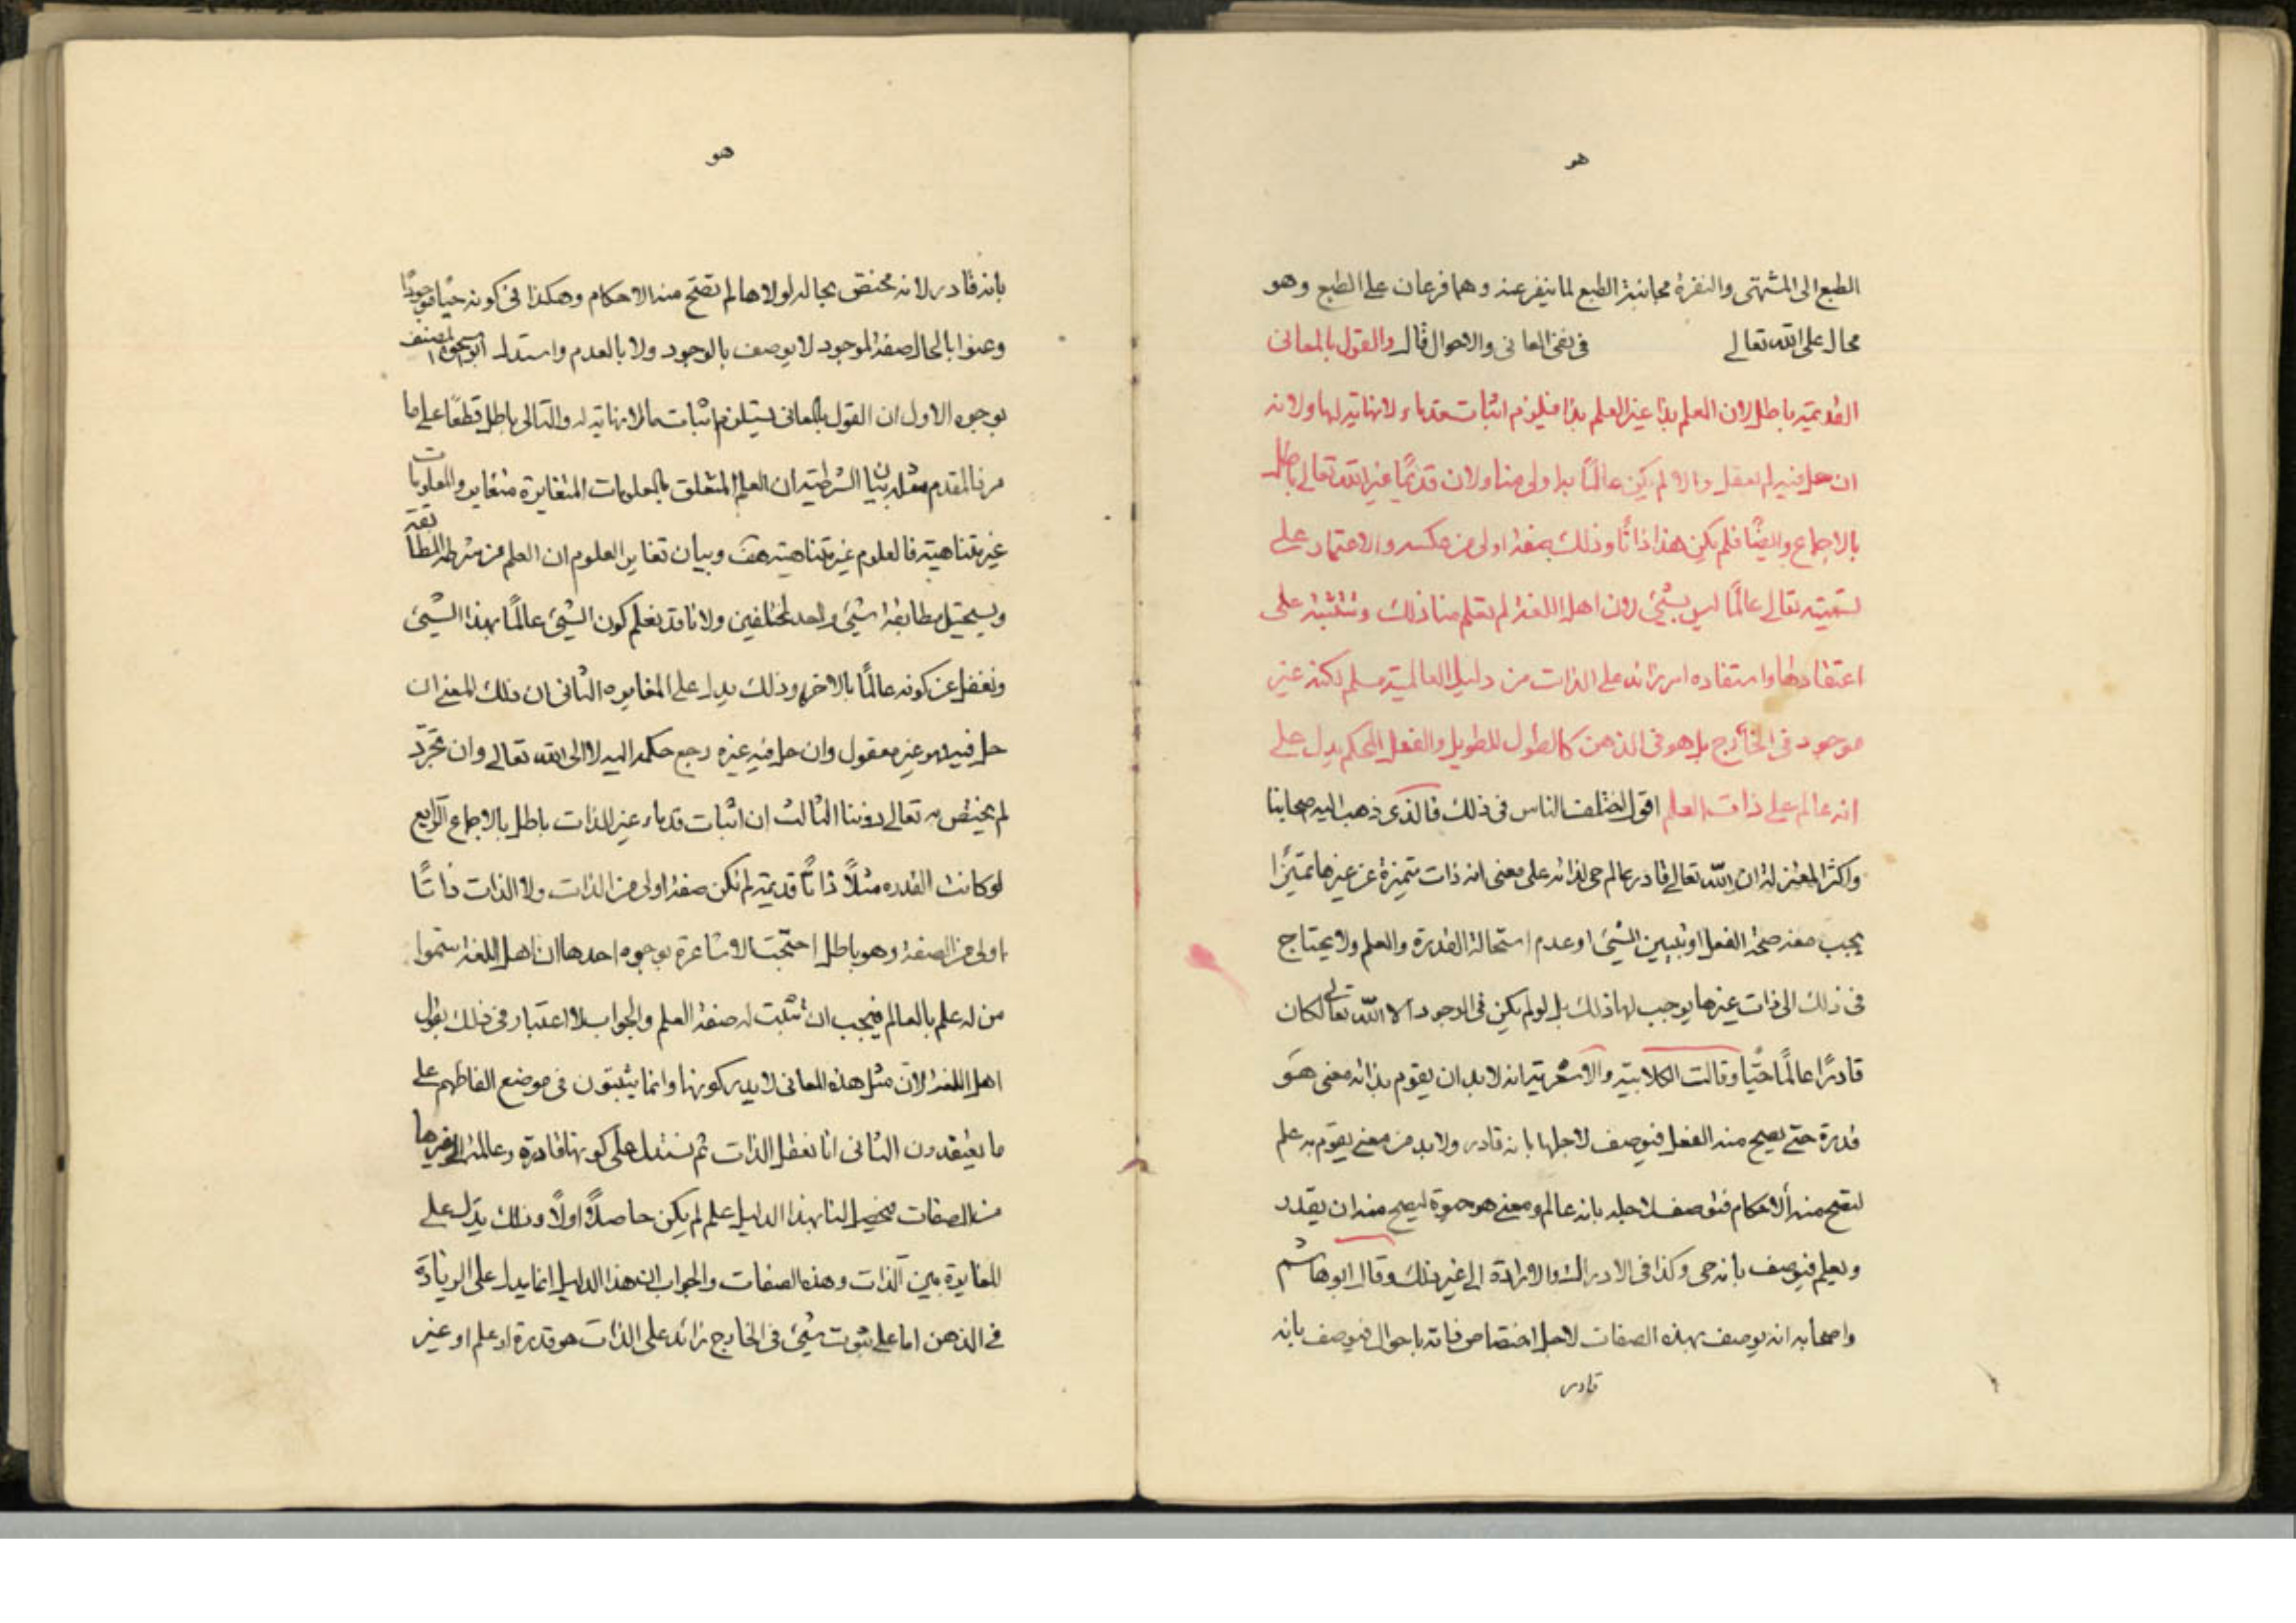 هو
الطبع الى المشتهى والنفرة مجانبة الطبع لما ينفر عنه وهما فرعان على الطبع وهو
محال على الله تعالى في نفى المعانى والاحوال قال والقول بالمعانى
القديمة باطل لان العلم بذا غير العلم بذا فيلزم اثبات قدماء لا نهاية لها ولانه
ان حل فيه لم يعقل والا لم يكن عالمًا به اولى منا ولان قديمًا غير الله تعالى باطل
بالاجماع وايضًا فلم يكن هذا ذاتًا وذلك صفة اولى من عكسه والاعتماد على
تسميته تعالى عالمًا ليس بشئ لان اهل اللغة لم تعلم منا ذلك على
اعتقادها واستفاده امر زائد على الذات من دليل العالمية مسلم لكنه غير
موجود في الخارج بل هو في الذهن كالطول للطويل والفعل المحكم يدل على
انه عالم على ذات العلم اقول اختلفت الناس في ذلك فالذى ذهب اليه اصحابنا
واكثر المعتزلة ان الله تعالى قادر عالم حى لذاته على معنى انه ذات متميزة عن غيرها تميزًا
يجب معه صحة الفعل او تبيين الشئ او عدم استحالة القدرة والعلم ولا يحتاج
في ذلك الى ذات غيرها يوجب لها ذلك بل لو لم يكن في الوجود الا الله تعالى لكان
قادرًا عالمًا حيًا وقالت الكلابية والاشعرية انه لا بد ان يقوم بذاته معنى هو
قدرة حتى يصح منه الفعل فيوصف لاجلها بانه قادر ولا بد من معنى يقوم به علم
لتصح منه الاحكام فيوصف لاجله بانه عالم ومعنى هو حيوة ليصح منه ان يقدر
ويعلم فيوصف بانه حى وكذا في الادراك والارادة الى غير ذلك وقال ابو هاشم
واصحابه انه يوصف بهذه الصفات لاجل اختصاص ذاته باحوال فيوصف بانه
قادر
هو
بانه قادر لانه مختص بحاله لولاها لم تصح منه الاحكام وهكذا في كونه حيًا موجودًا
وعنوا بالحال صفة لموجود لا يوصف بالوجود ولا بالعدم واستدل المصنف
بوجوه الاول ان القول بالمعانى يستلزم اثبات ما لا نهاية له والتالى باطل قطعًا على ما
مر فالمقدم مثله بيان الشرطية ان العلم المتعلق بالمعلومات المتغايرة متغاير والمعلومات
غير متناهية فالعلوم غير متناهية هف وبيان تغاير العلوم ان العلم من شرطه المطابقة
ويستحيل مطابقة شئ واحد لمختلفين ولانا قد نعلم كون الشئ عالمًا بهذا الشئ
ونغفل عن كونه عالمًا بالاخر وذلك يدل على المغايره الثانى ان ذلك المعنى ان
حل فيه فهو غير معقول وان حل فيه غيره رجع حكمه اليه لا الى الله تعالى وان تجرد
لم يختص به تعالى دوننا الثالث ان اثبات قدماء غير الذات باطل بالاجماع الرابع
لو كانت القدره مثلًا ذاتًا قديمة لم تكن صفة اولى من الذات ولا الذات ذاتًا
اولى من الصفة وهو باطل احتجت الاشاعرة بوجوه احدها ان اهل اللغة سموا
من له علم بالعالم فيجب ان تثبت له صفة العلم والجواب لا اعتبار في ذلك بقول
اهل اللغة لان مثل هذه المعانى لا يدركونها وانما يثبتون في موضع الفاظهم على
ما يعتقدون الثانى انا نعقل الذات ثم نستدل على كونها قادرة وعالمة الى غيرها
من الصفات فيحصل لنا بهذا الدليل علم لم يكن حاصلًا اولًا وذلك يدل على
المغايرة بين الذات وهذه الصفات والجواب ان هذا الدليل انما يدل على الزيادة
في الذهن اما على ثبوت شئ في الخارج زائد على الذات هو قدرة او علم او غير